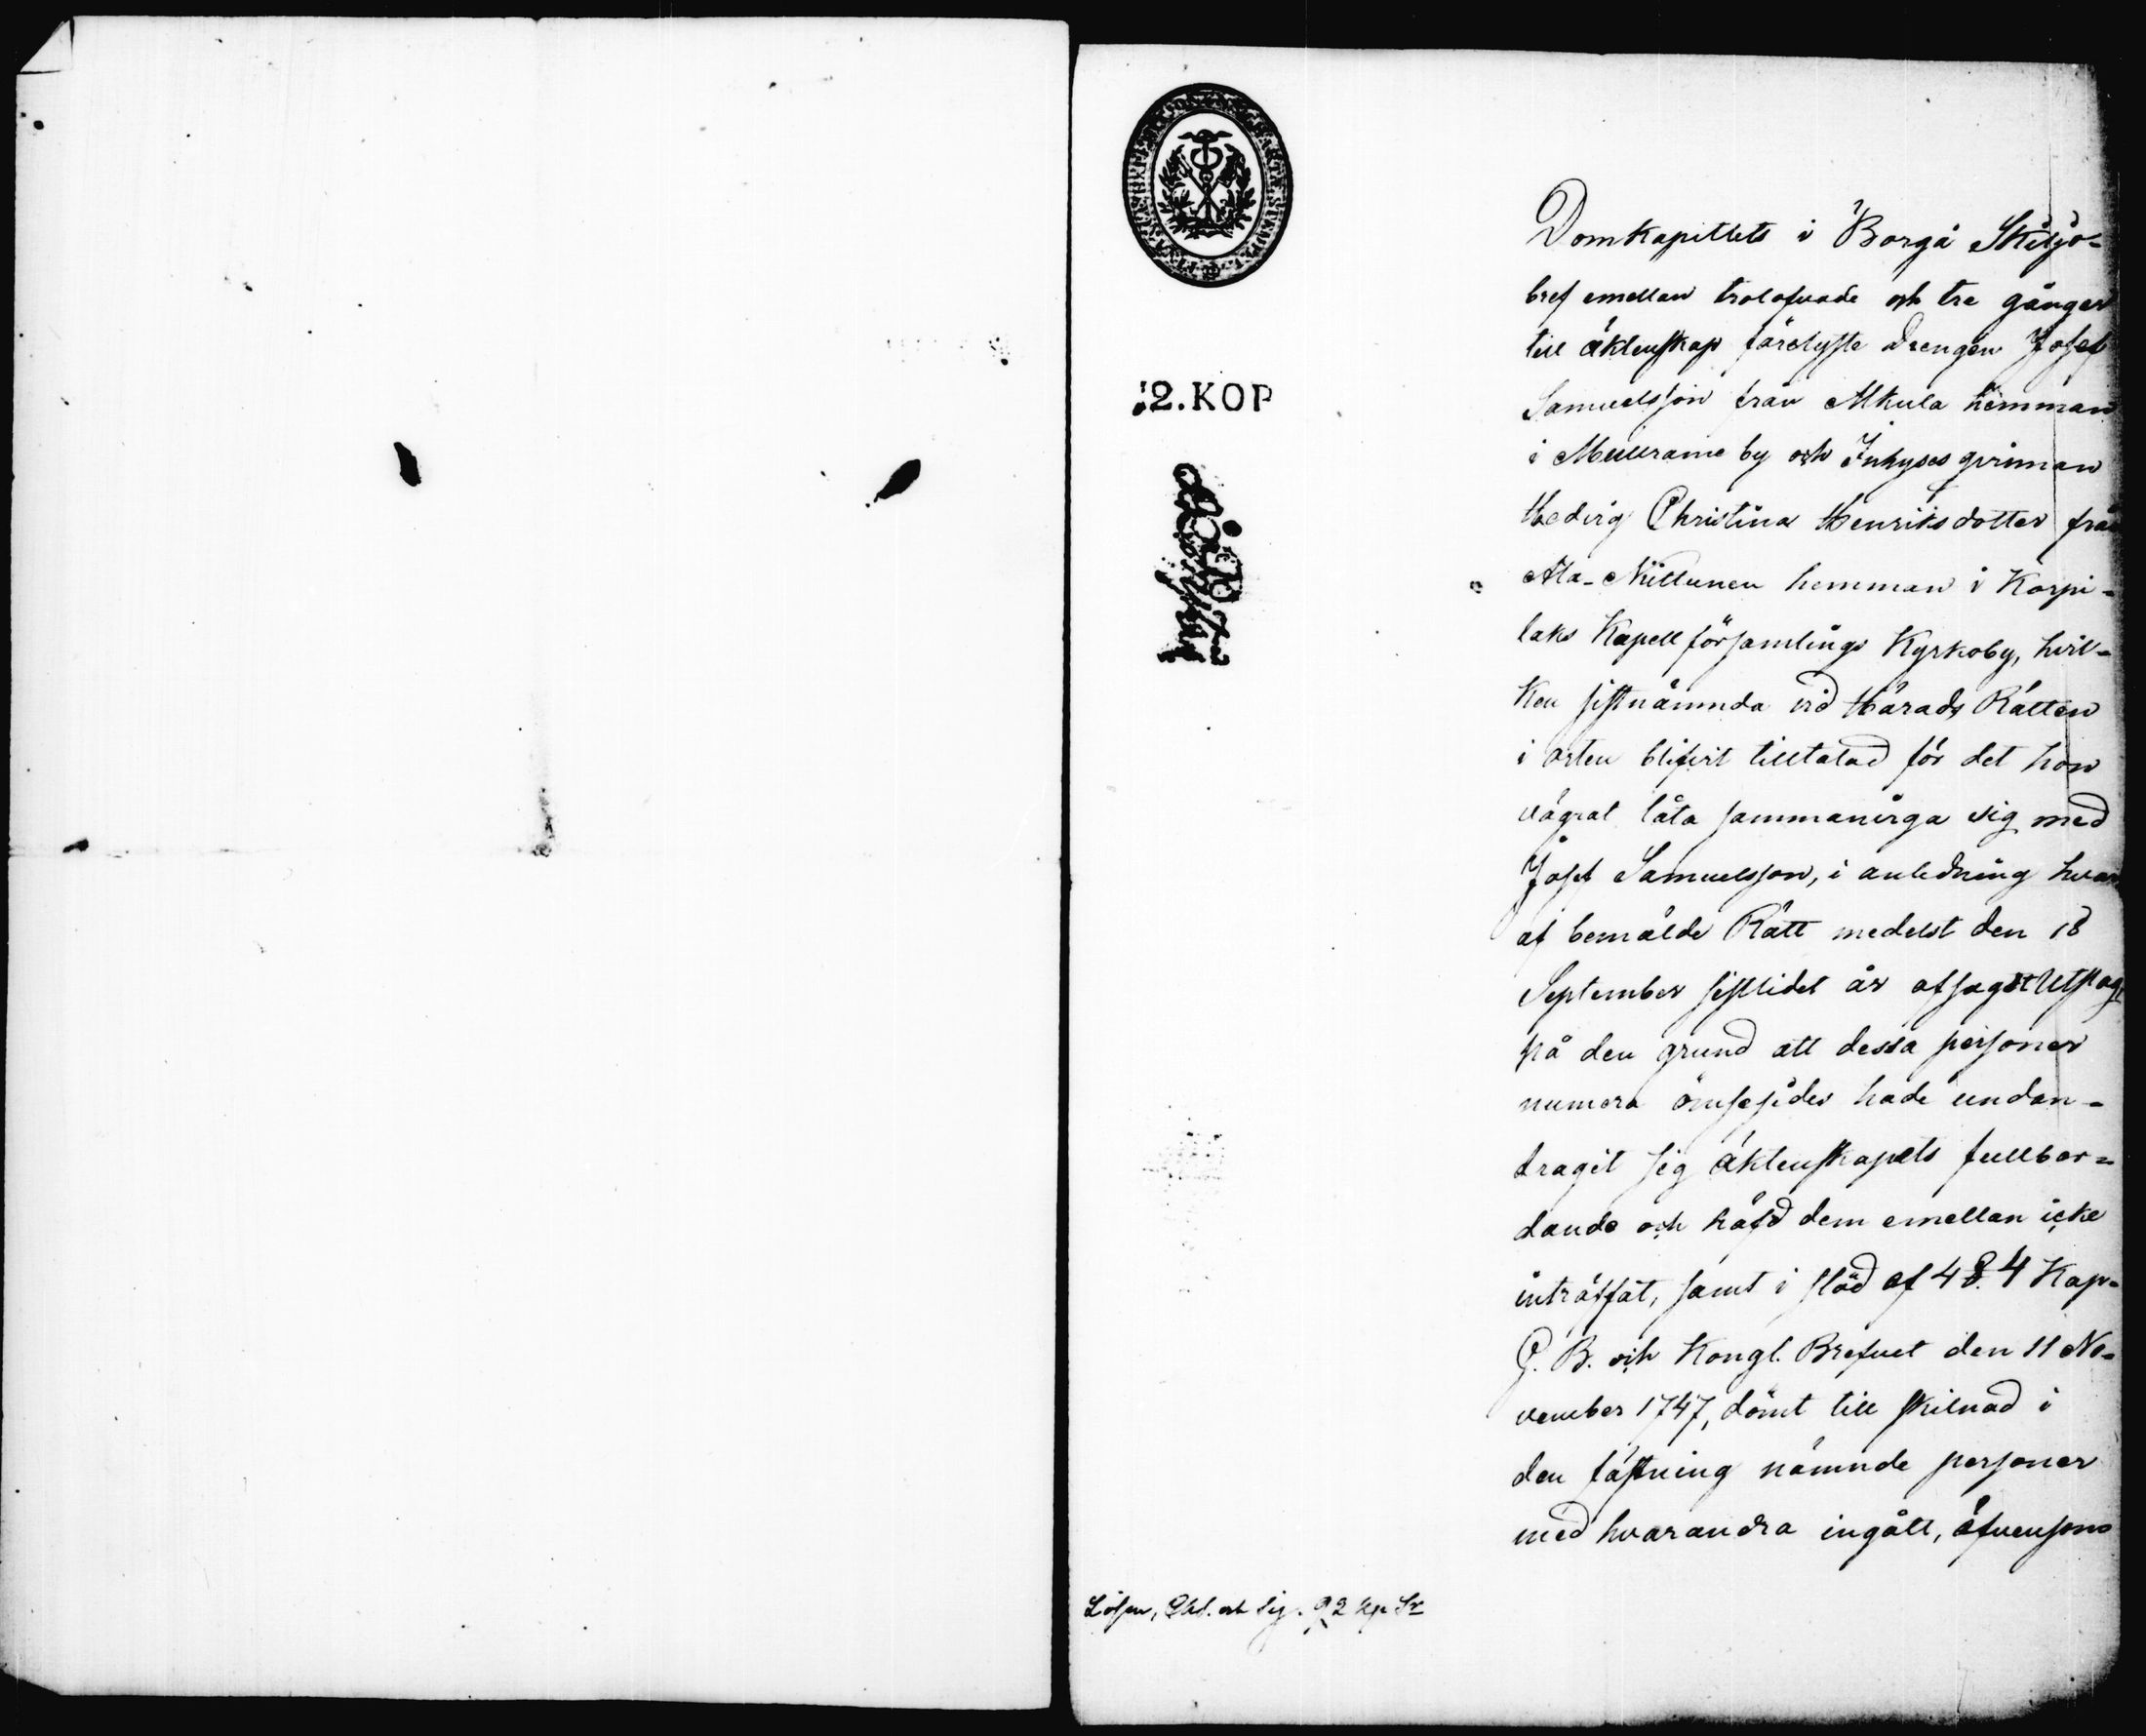 12.KOP
Domkapitlets i Borgå Skiljo-
bref emellan trolofvade och tre gånger
till äktenskap förelyste Drengen Josef
Samuelsson från Alkula hemman
i Muurame by och Inhyses qvinnan
Hedvig Christina Henriksdotter från
Ala-Niittunen hemman i Korpi-
laks Kapellförsamlings Kyrkoby, hvil-
ken sistnämnda vid Härads Rätten
i orten blifvit tilltalad för det hon
vägrat låta sammanviga sig med
Josef Samuelsson, i anledning hvar
af bemälde Rätt medelst den 18
September sistlidet år afsagdt Utslag
på den grund att dessa personer
numera ömsesides hade undan-
dragit sig äktenskapets fullbor-
dande och häfd dem emellan icke
inträffat, samt i stöd af 4 §. 4 Kap.
G. B. och Kongl. Brefvet den 11 No-
vember 1747, dömt till skilnad i
den fästning nämnde personer
med hvarandra ingått, äfvensom
Lösen, ChS. och Sig. 92 kp Sr